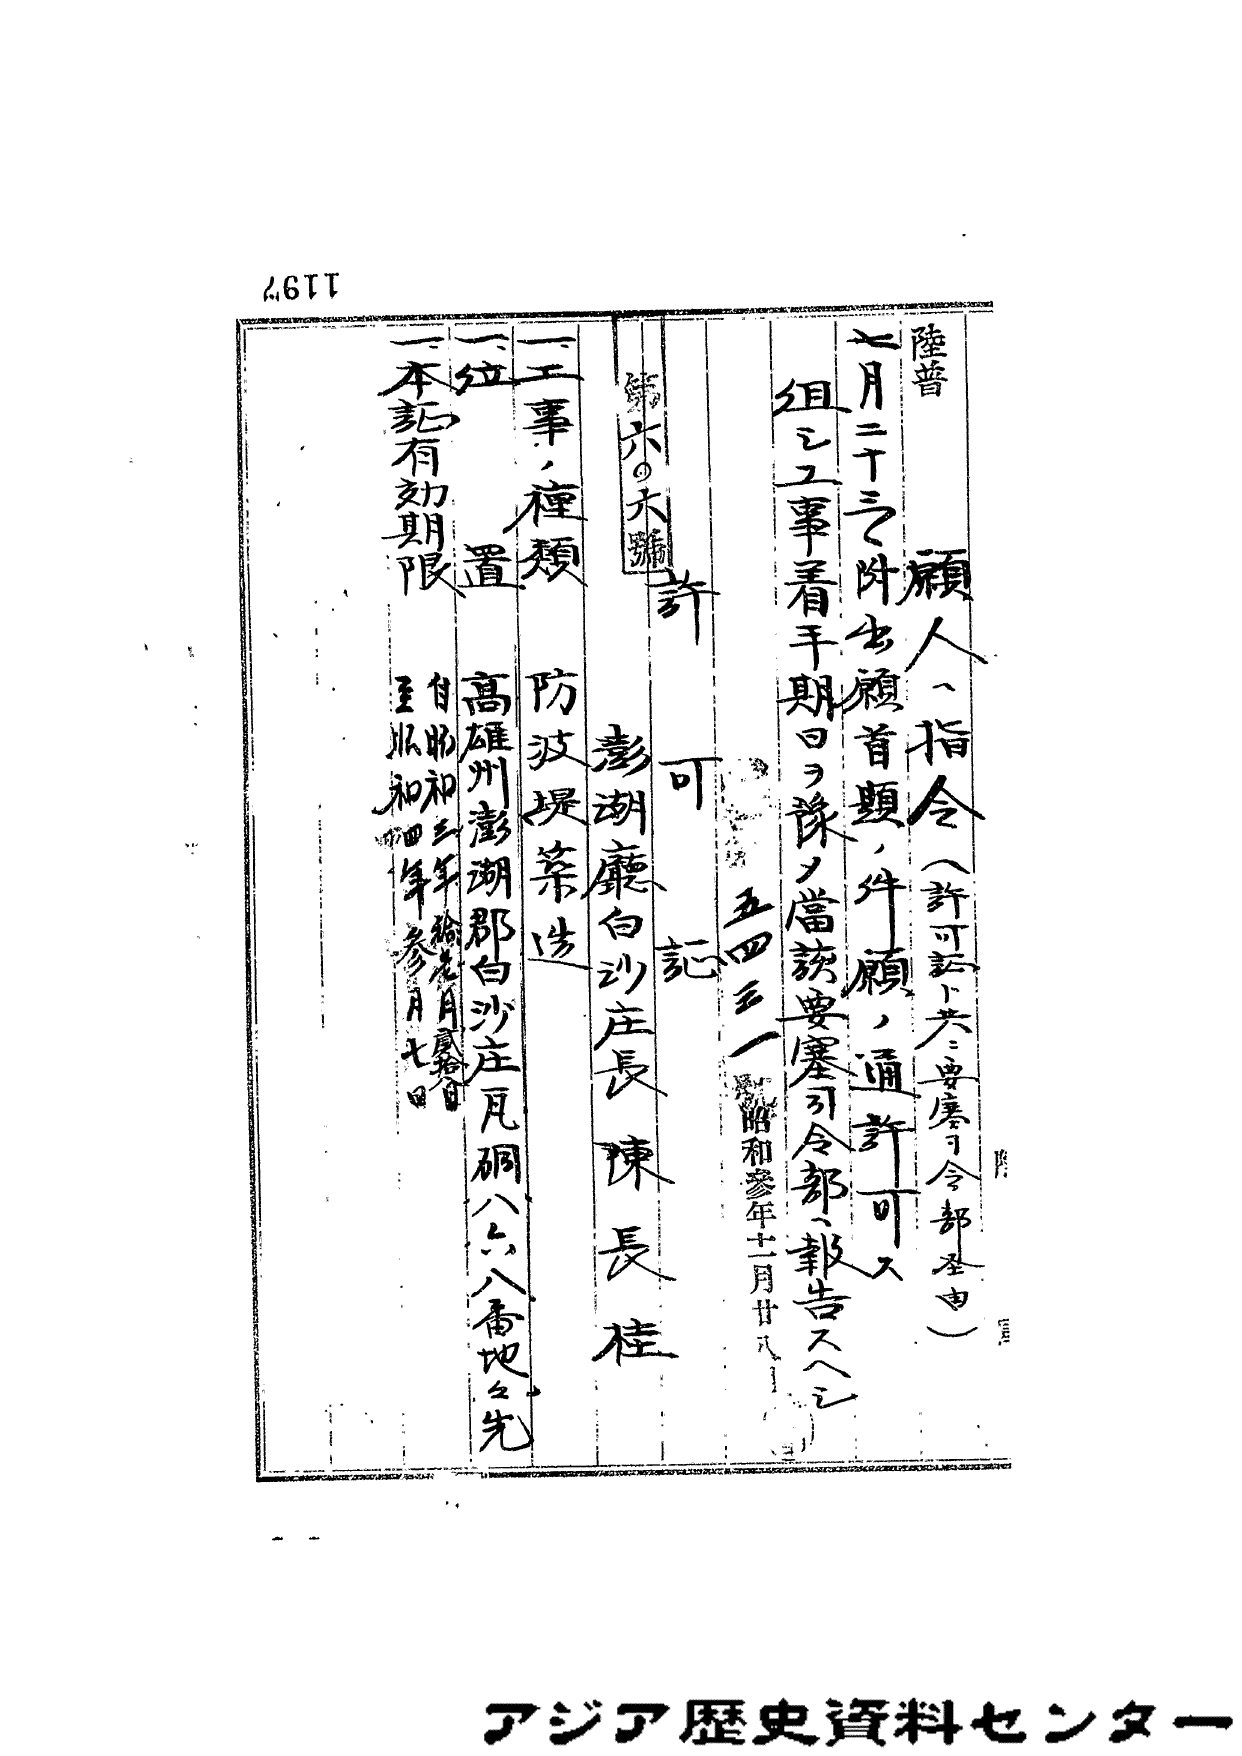 1197
陸普
願人ヘ指令(許可証ト共ニ要塞司令部経由)
七月二十三日附出願首題ノ件願ノ通許可ス
但シ工事着手期日ヲ豫メ當該要塞司令部ヘ報告スヘシ
五四三一 昭和參年十一月廿八日
許可証
第六の六號
澎湖廳白沙庄長 陳長桂
一、工事ノ種類 防波堤築造
一、位置 高雄州澎湖郡白沙庄瓦硐八六八番地々先
一、本証有効期限
自昭和三年拾壱月貳拾八日
至昭和四年參月七日
アジア歴史資料センター